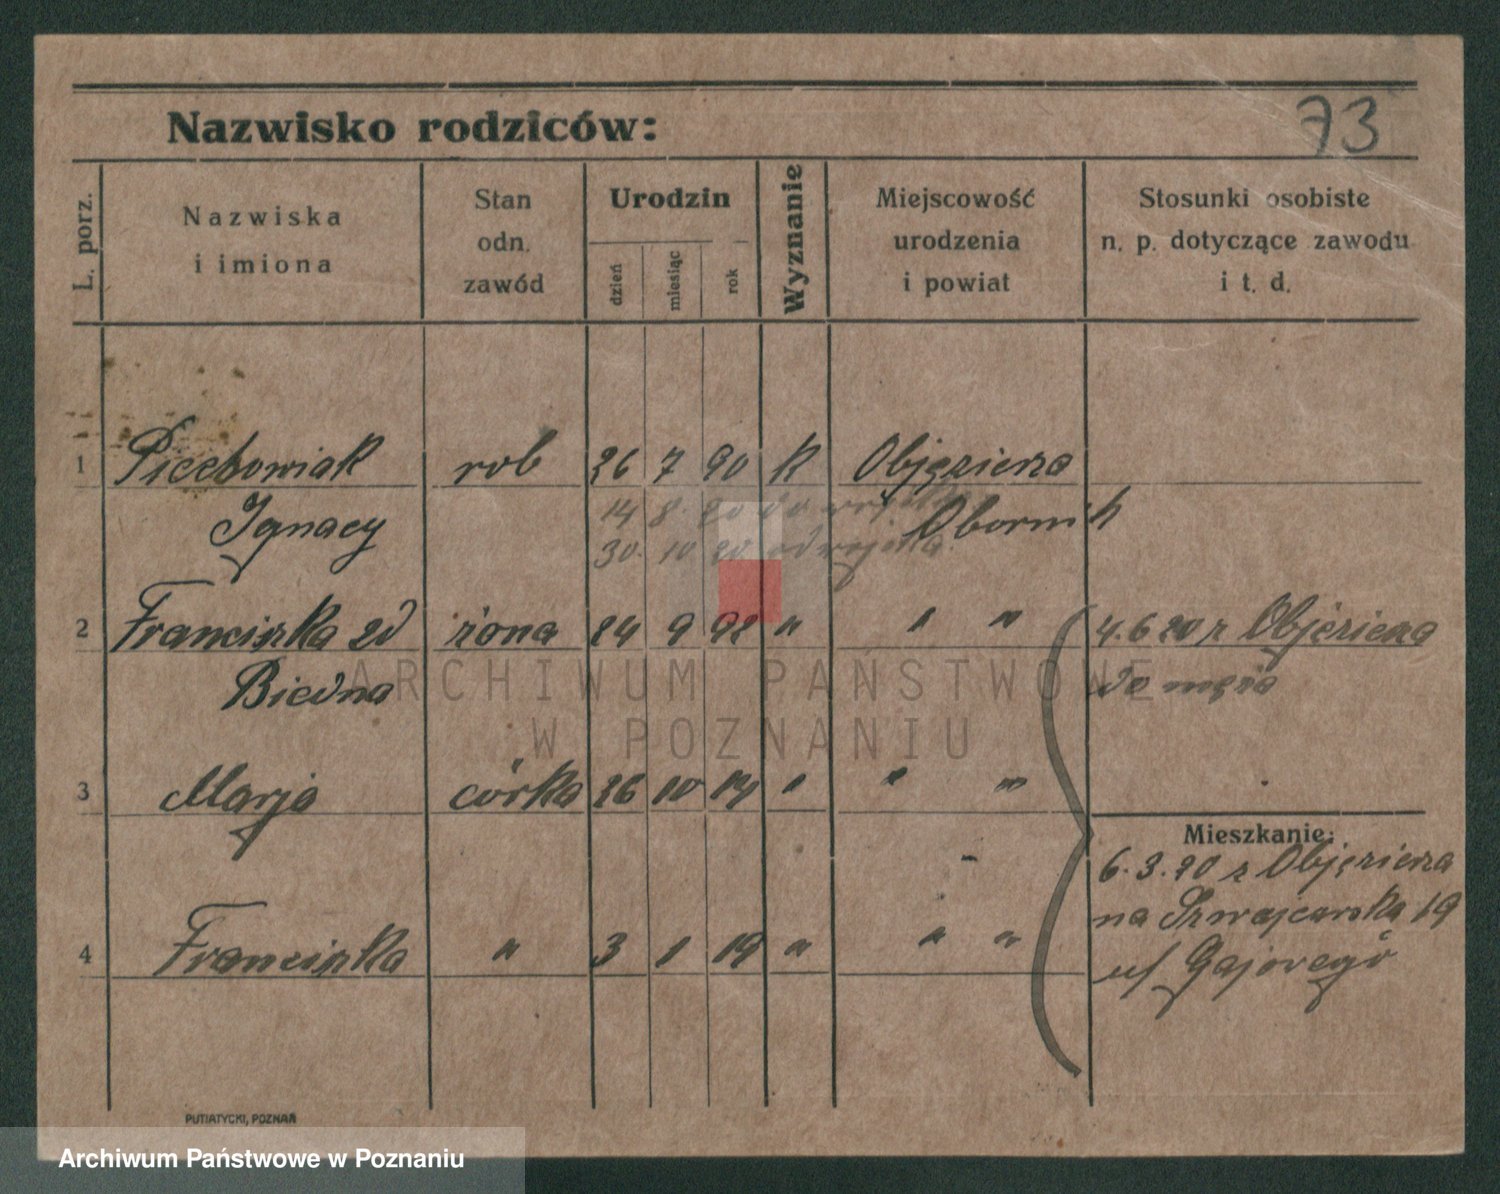 73
Nazwisko rodziców:
L. porz.
Nazwiska
i imiona
Stan
odn.
zawód
Urodzin
dzień
miesiąc
rok
Wyznanie
Miejscowość
urodzenia
i powiat
Stosunki osobiste
n. p. dotyczące zawodu
i t. d.
1 Piechowiak rob 26 7 90 k Objęzierza
14 8. 20 do wojska
Ignacy Obornik
30. 10 20 od wojska.
2 Franciszka zd żona 24 9 92 " " " 4.6 20 z Objezierza
Biedna do męża
ARCHIWUM PAŃSTWOWE
W POZNANIU
3 Marja córka 26 10 14 " " "
Mieszkanie:
6.3.20 z Objęzierza
na Szwajcarska 19
4 Franciszka " 3 1 19 " " "
u/ Gajorego
PUTIATYCKI, POZNAŃ
Archiwum Państwowe w Poznaniu